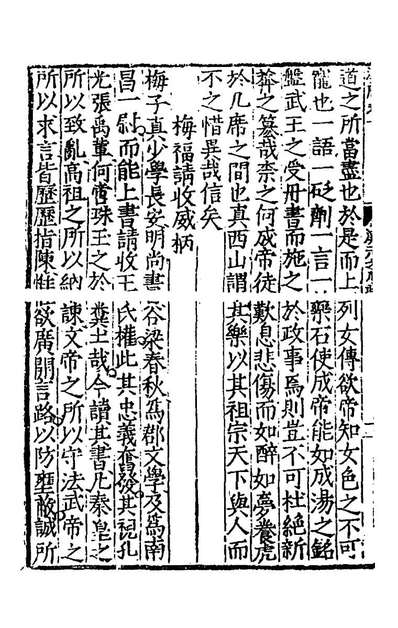 道之所當盡也於是而上列女傳欲帝知女色之不可
寵也一語一砭劑一言一藥石使成帝能如成湯之銘
盤武王之受丹書而施之於政事焉則豈不可杜絕新
莽之篡哉柰之何成帝徒歎息悲傷而如醉如夢養虎
於几席之間也真西山謂其樂以其祖宗天下與人而
不之惜異哉信矣
梅福請收威柄
梅子真少學長安明尚書谷梁春秋爲郡文學及爲南
昌一尉而能上書請收王氏權此其忠義奮發其視孔
光張禹輩何啻珠玉之於糞土哉今讀其書凡秦皇之
所以致亂高祖之所以納諫文帝之所以守法武帝之
所以求言皆歷歷指陳惟欲廣開言路以防壅蔽誠所